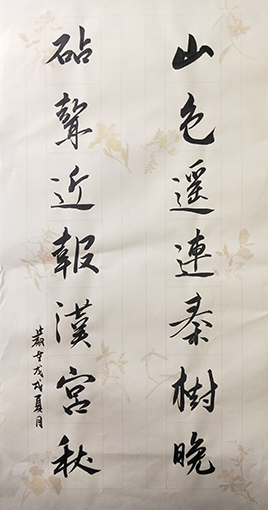 山色遥連秦樹晚
砧聲近報漢宮秋
戊戌夏月